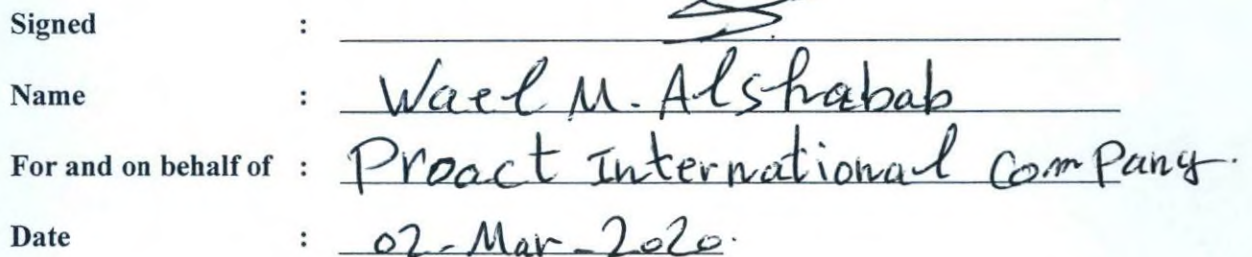 Signed :
Name : Wael M. Alshabab
For and on behalf of : Proact International Company.
Date : 02-Mar-2020.